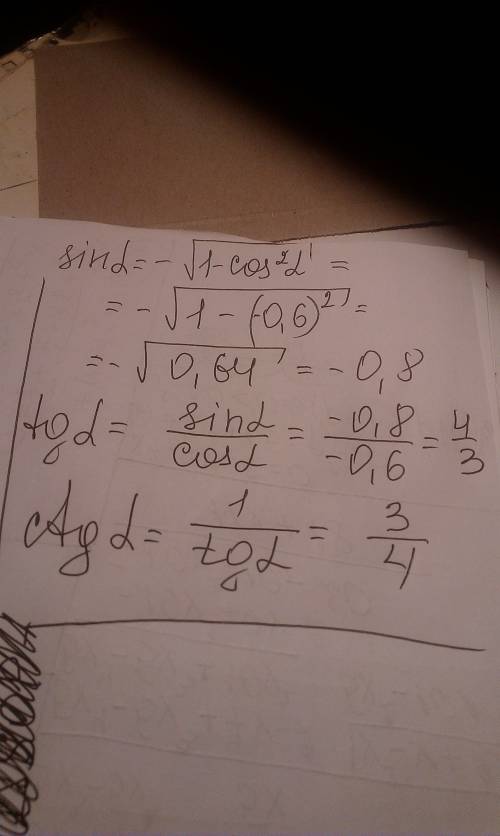 sinα = - √(1 - cos²α) =
= - √(1 - (-0,6)²) =
= - √(0,64) = - 0,8
tgα = sinα/cosα = -0,8/-0,6 = 4/3
ctgα = 1/tgα = 3/4